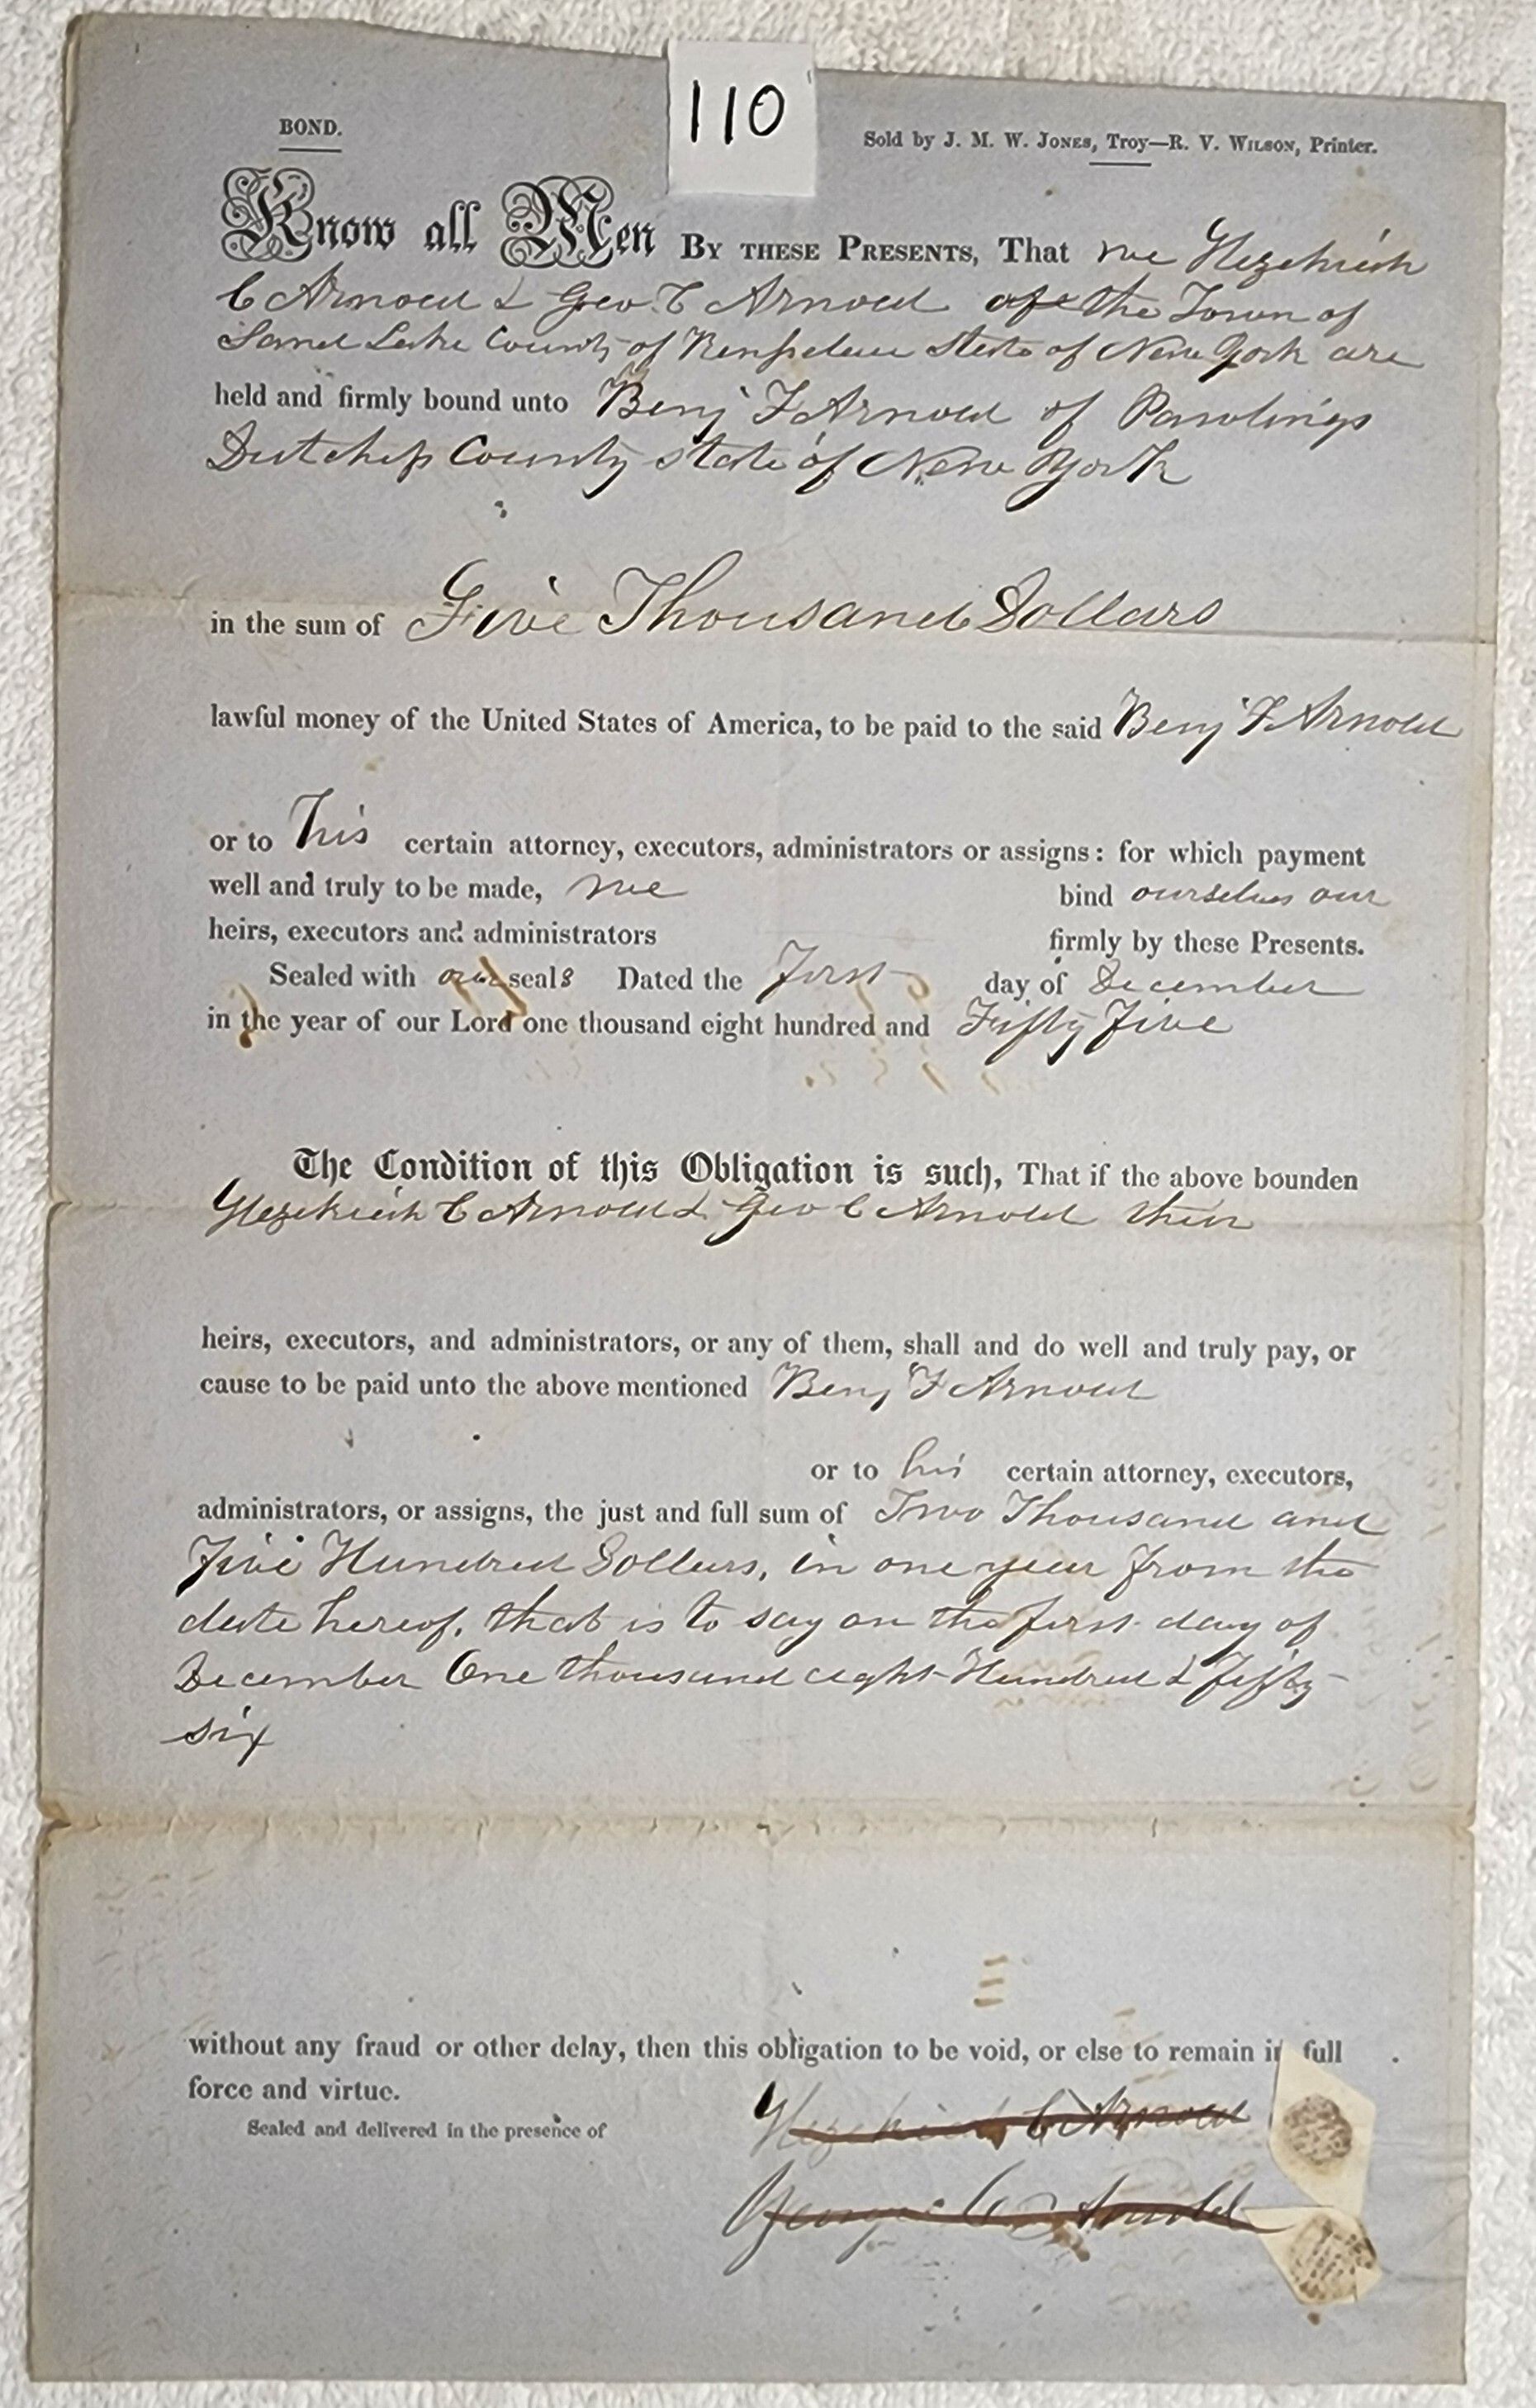 110
BOND.
Sold by J. M. W. JONES, Troy—R. V. WILSON, Printer.
Know all Men BY THESE PRESENTS, That we Hezekiah
C Arnold & Geo. C Arnold of the Town of
Sand Lake County of Rensselaer State of New York are
held and firmly bound unto Benj F Arnold of Pawlings
Dutchess County State of New York
in the sum of Five Thousand Dollars
lawful money of the United States of America, to be paid to the said Benj F Arnold
or to his certain attorney, executors, administrators or assigns: for which payment
well and truly to be made, we bind ourselves our
heirs, executors and administrators firmly by these Presents.
Sealed with our seals Dated the first day of December
in the year of our Lord one thousand eight hundred and Fifty Five
The Condition of this Obligation is such, That if the above bounden
Hezekiah C Arnold & Geo C Arnold their
heirs, executors, and administrators, or any of them, shall and do well and truly pay, or
cause to be paid unto the above mentioned Benj F Arnold
or to his certain attorney, executors,
administrators, or assigns, the just and full sum of Two Thousand and
Five Hundred Dollars, in one year from the
date hereof, that is to say on the first day of
December One thousand eight Hundred & fifty
six
without any fraud or other delay, then this obligation to be void, or else to remain in full
force and virtue.
Sealed and delivered in the presence of
Hezekiah C Arnold
George C Arnold